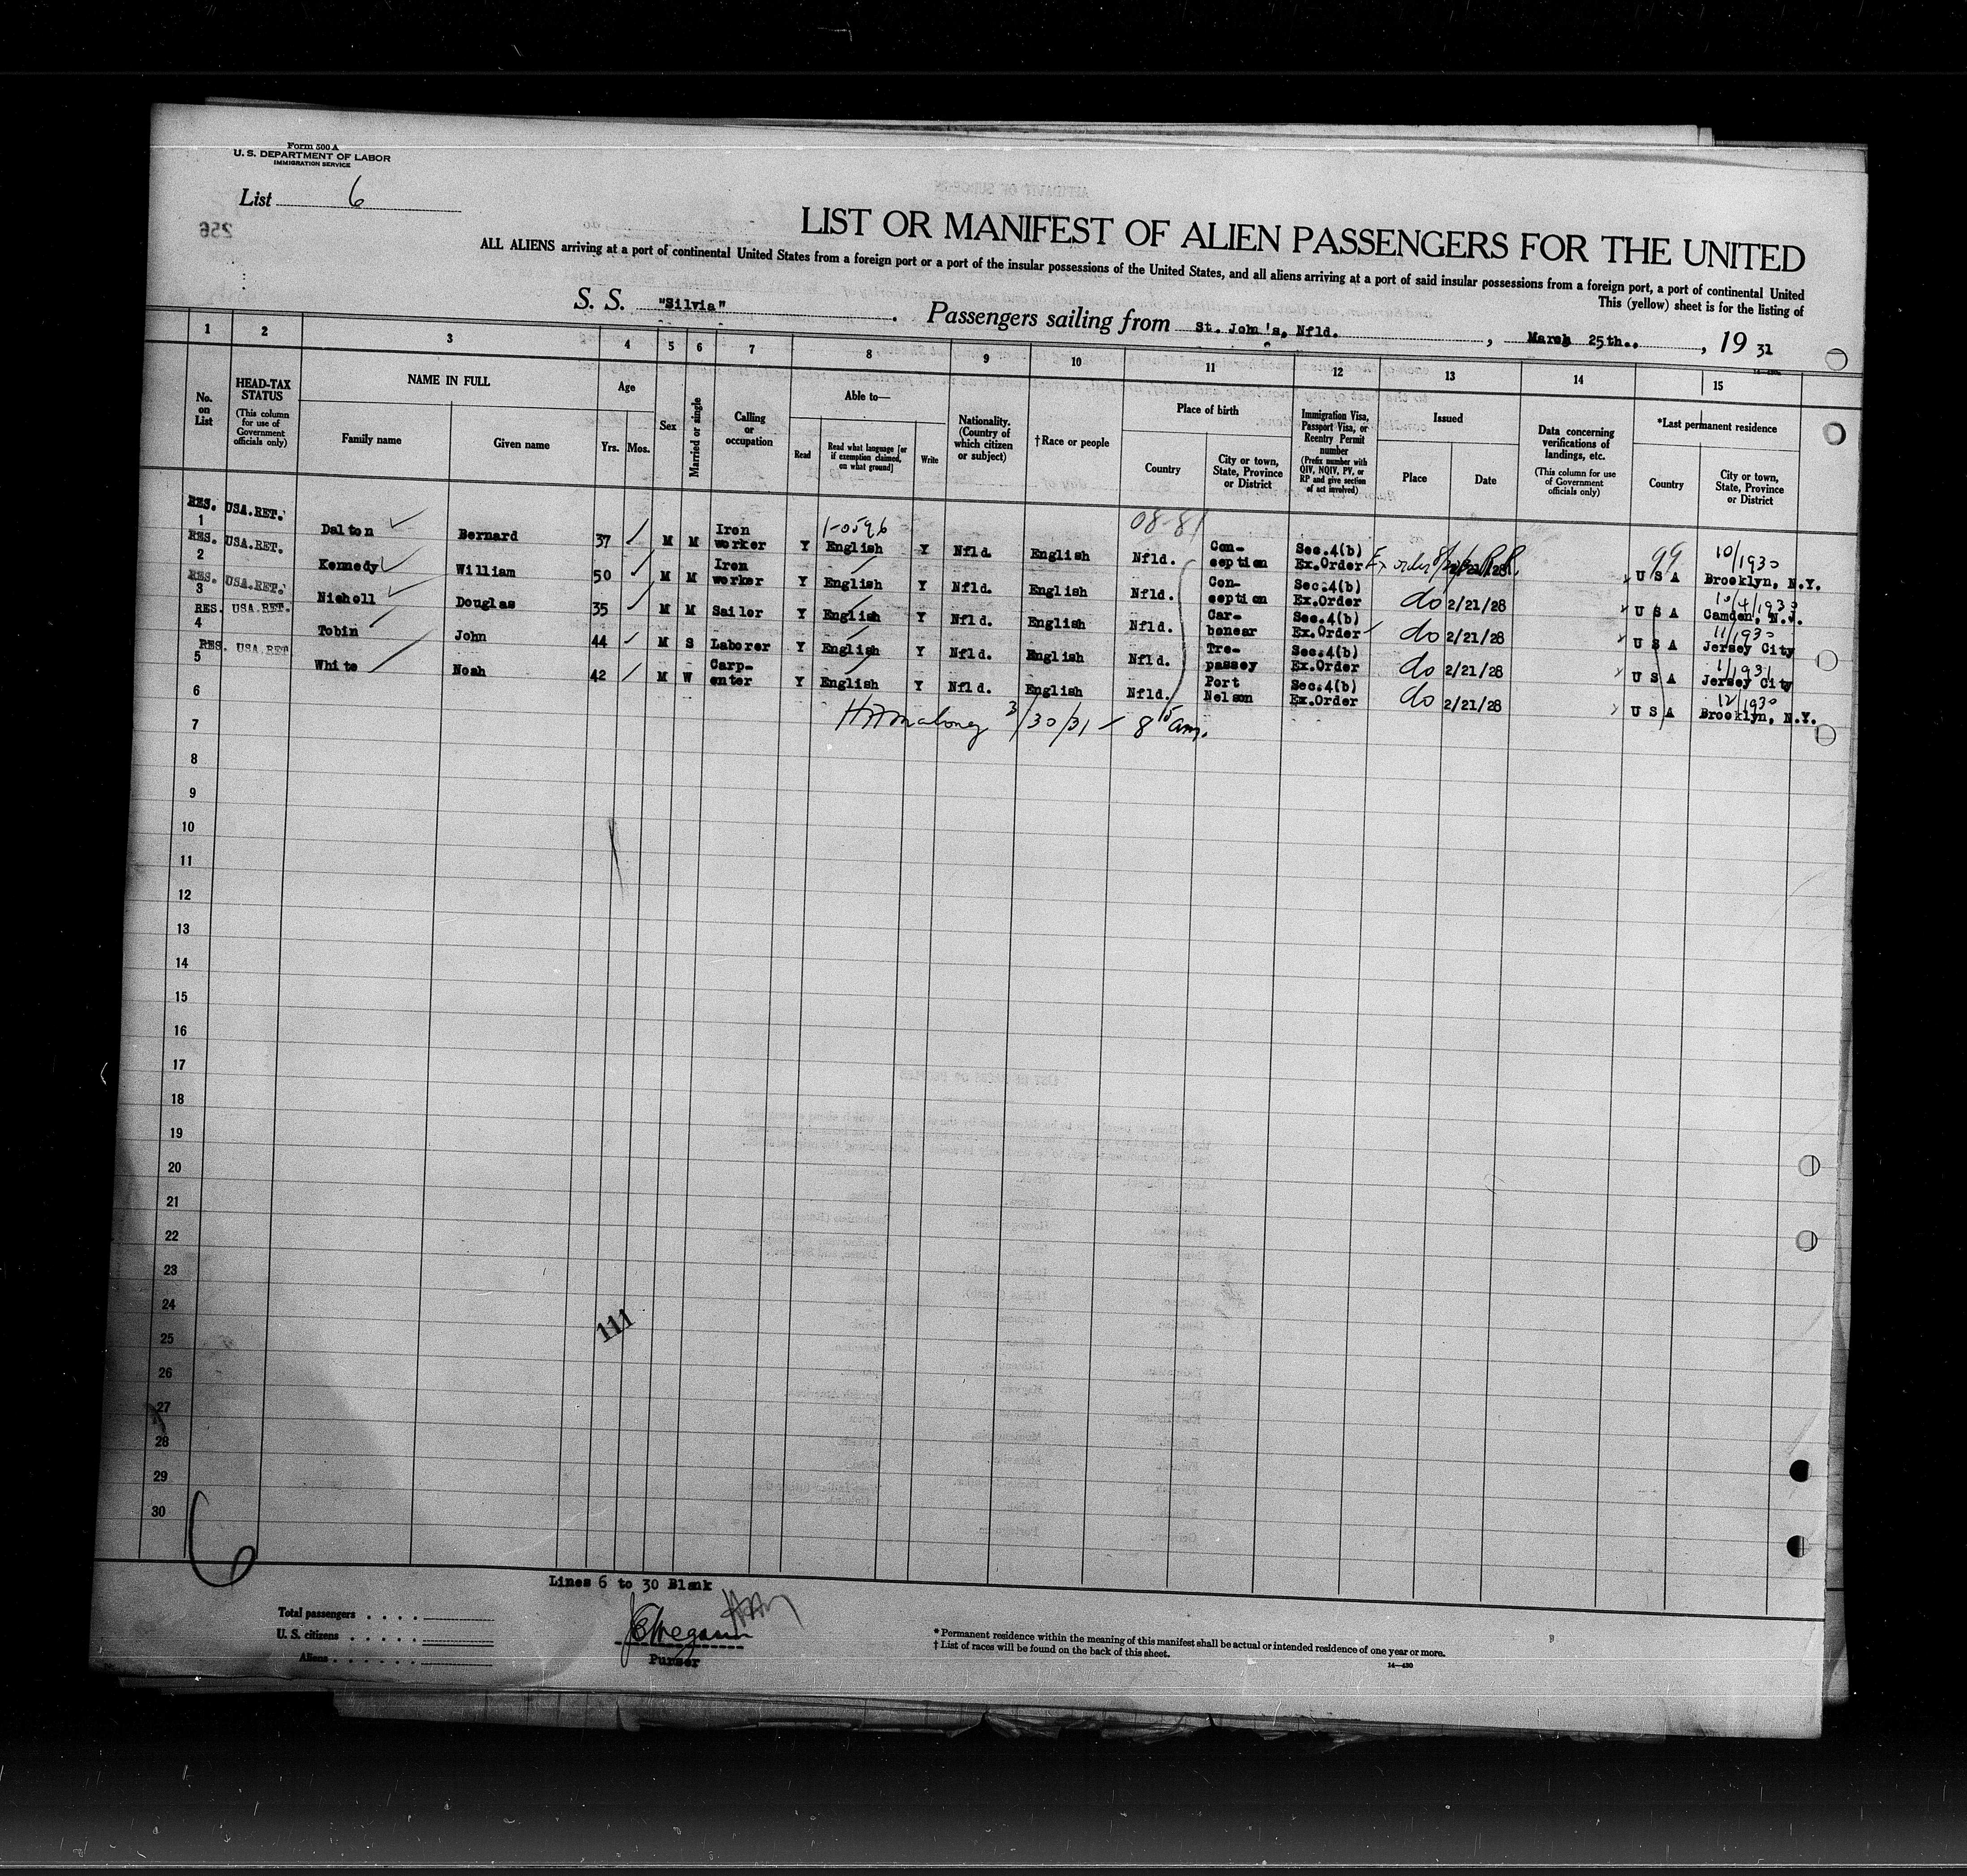 Form 500 A
U. S. DEPARTMENT OF LABOR
IMMIGRATION SERVICE
List 6
256
LIST OR MANIFEST OF ALIEN PASSENGERS FOR THE UNITED
ALL ALIENS arriving at a port of continental United States from a foreign port or a port of the insular possessions of the United States, and all aliens arriving at a port of said insular possessions from a foreign port, a port of continental United
This (yellow) sheet is for the listing of
S. S. "Silvia". Passengers sailing from St. John's, Nfld., March 25th., 19 31
1 2 3 4 5 6 7 8 9 10 11 12 13 14 15
No. on List
HEAD-TAX STATUS
(This column for use of Government officials only)
NAME IN FULL
Family name
Given name
Age
Yrs. Mos.
Sex
Married or single
Calling or occupation
Able to—
Read
Read what language [or if exemption claimed, on what ground]
Write
Nationality. (Country of which citizen or subject)
†Race or people
Place of birth
Country
City or town, State, Province or District
Immigration Visa, Passport Visa, or Reentry Permit number
(Prefix number with QIV, NQIV, PV, or RP and give section of act involved)
Issued
Place
Date
Data concerning verifications of landings, etc.
(This column for use of Government officials only)
*Last permanent residence
Country
City or town, State, Province or District
1-0596
08-81
99
1 RES. USA.RET. Dalton Bernard 37 M M Iron worker Y English Y Nfld. English Nfld. Con- ception Sec.4(b) Ex.Order U S A 10/1930 Brooklyn, N.Y.
2 RES. USA.RET. Kennedy William 50 M M Iron worker Y English Y Nfld. English Nfld. Con- ception Sec.4(b) Ex.Order do 2/21/28 U S A 10/4/1930 Camden, N.J.
3 RES. USA.RET. Nicholl Douglas 35 M M Sailor Y English Y Nfld. English Nfld. Car- bonear Sec.4(b) Ex.Order do 2/21/28 U S A 11/1930 Jersey City
4 RES. USA.RET. Tobin John 44 M S Laborer Y English Y Nfld. English Nfld. Tre- passey Sec.4(b) Ex.Order do 2/21/28 U S A 1/1931 Jersey City
5 RES. USA.RET White Noah 42 M W Carp- enter Y English Y Nfld. English Nfld. Port Nelson Sec.4(b) Ex.Order do 2/21/28 U S A 12/1930 Brooklyn, N.Y.
6
7
3/30/31 - 8 15 am.
8
9
10
11
12
13
14
15
16
17
18
19
20
21
22
23
24
111
25
26
27
28
29
30
6
Lines 6 to 30 Blank
Total passengers
U. S. citizens
Aliens
Purser
* Permanent residence within the meaning of this manifest shall be actual or intended residence of one year or more.
† List of races will be found on the back of this sheet.
14—430